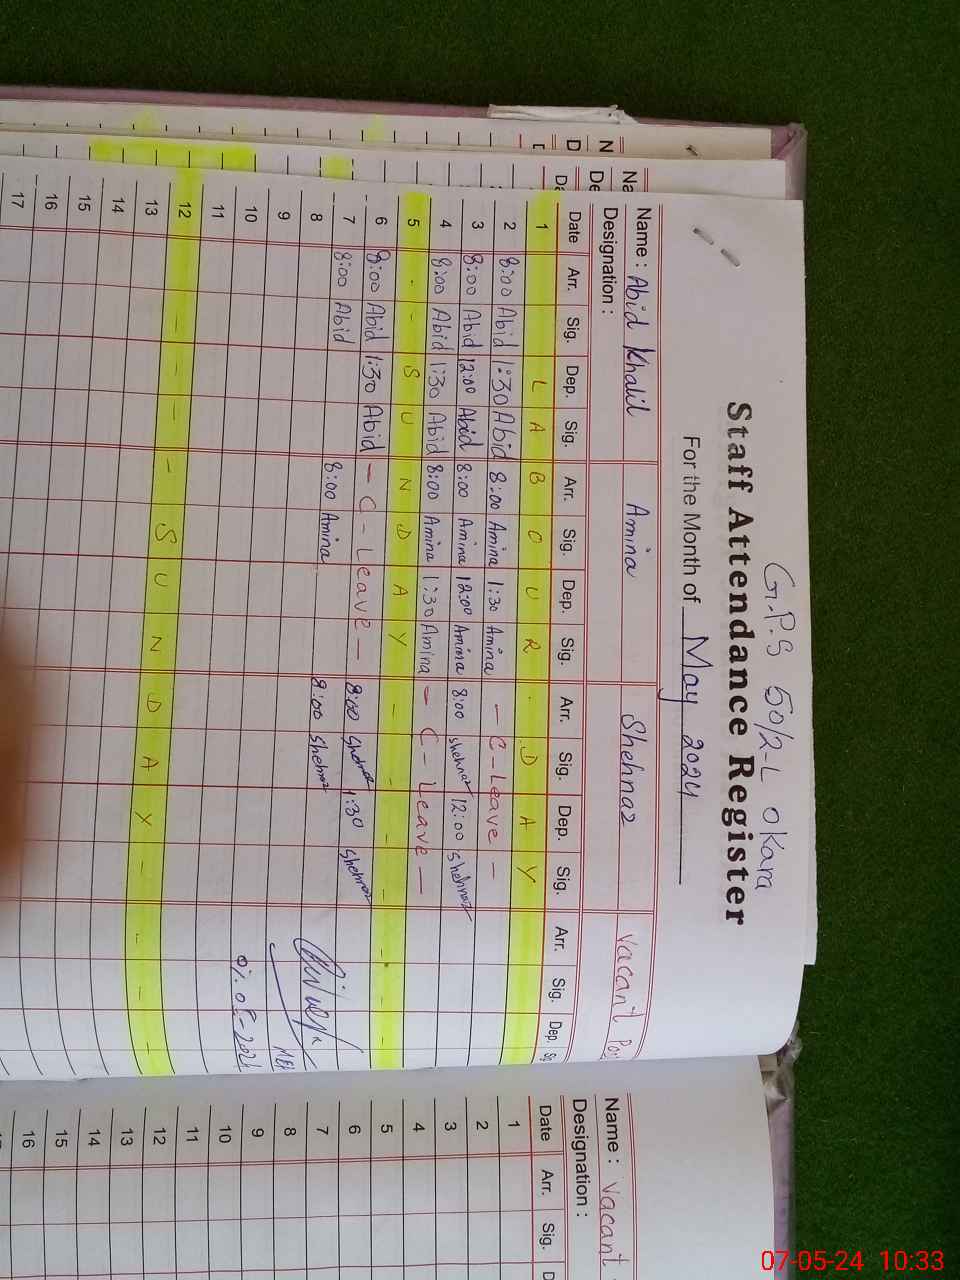 G.P.S 50/2-L Okara
Staff Attendance Register
For the Month of May 2024
Name : Abid Khalil Amina Shehnaz Vacant
Designation :
Date Arr. Sig. Dep. Sig. Arr. Sig. Dep. Sig. Arr. Sig. Dep. Sig. Arr. Sig. Dep.
1 L A B O U R . D A Y
2 8:00 Abid 1:30 Abid 8:00 Amina 1:30 Amina - C-Leave -
3 8:00 Abid 12:00 Abid 8:00 Amina 12:00 Amina 8:00 Shehnaz 12:00 Shehnaz
4 8:00 Abid 1:30 Abid 8:00 Amina 1:30 Amina - C-Leave -
5 - - S U N D A Y - - - - - -
6 8:00 Abid 1:30 Abid - C-Leave - 8:00 Shehnaz 1:30 Shehnaz
7 8:00 Abid 8:00 Amina 8:00 Shehnaz
8
9
10
11
12 - - - - - S U N D A Y - - - - -
13
14
15
16
17
Name : Vacant
Designation :
Date Arr. Sig.
1
2
3
4
5
6
7
8
9
10
11
12
13
14
15
16
07-05-24 10:33